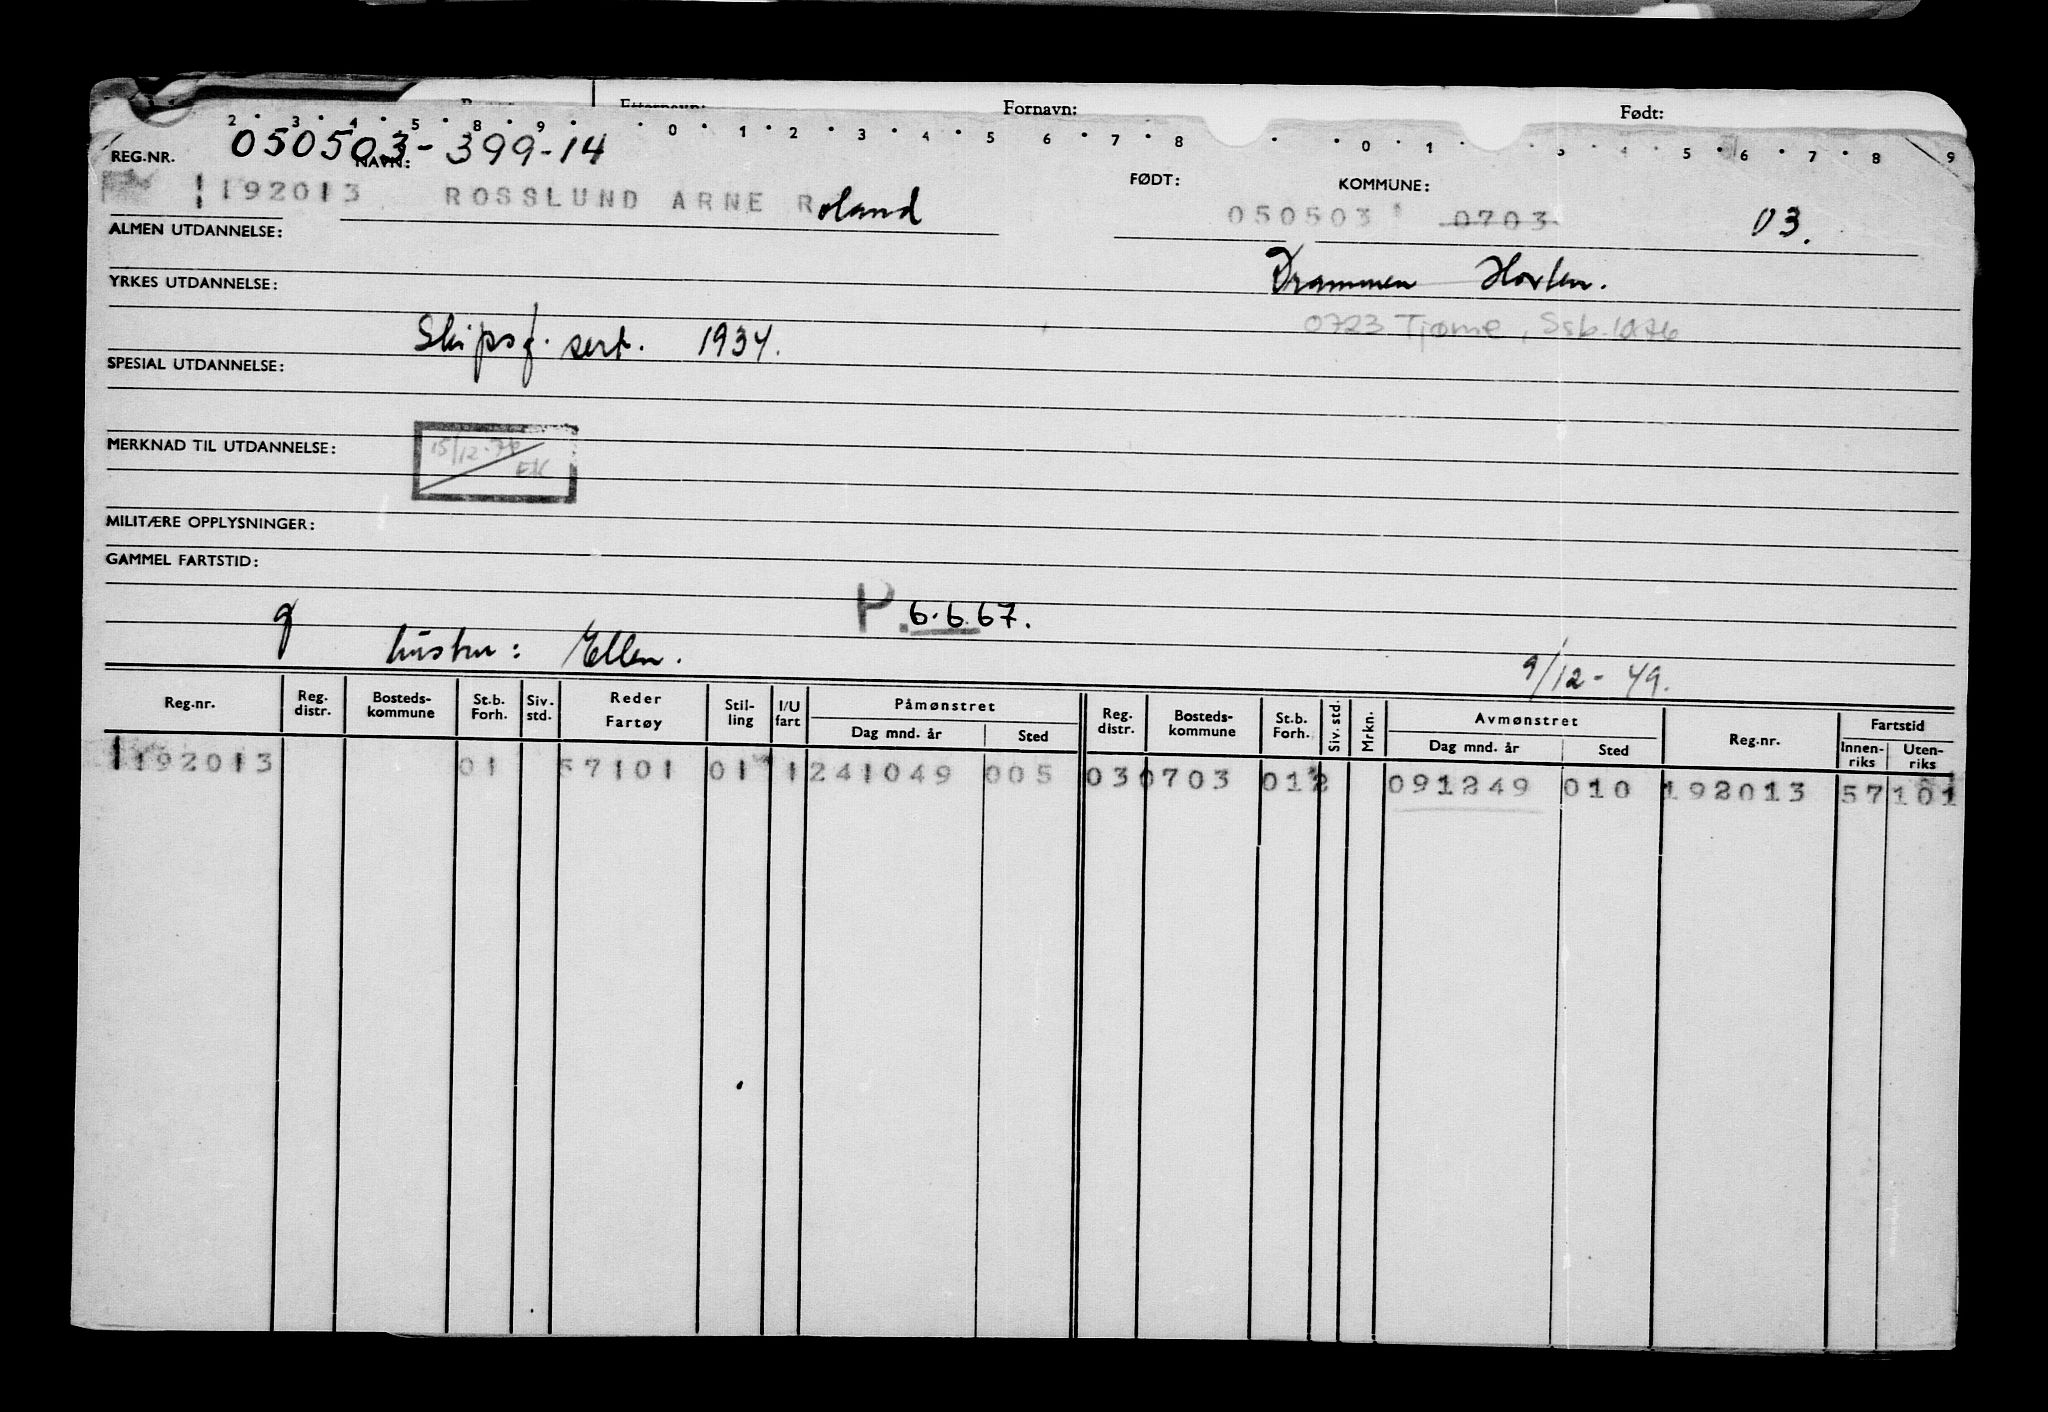 Fornavn: Født:
2 3 4 5 8 9 0 1 2 3 4 5 6 7 8 0 1 3 4 5 6 7 8 9
050503-399-14
REG.NR. NAVN: FØDT: KOMMUNE:
192013 ROSSLUND ARNE Roland 050503 0703 03.
ALMEN UTDANNELSE:
Drammen Horten.
YRKES UTDANNELSE:
0723 Tjøme, Ssb. 10.76
Skipsf. sert. 1934.
SPESIAL UTDANNELSE:
15/12-76
EK
MERKNAD TIL UTDANNELSE:
MILITÆRE OPPLYSNINGER:
GAMMEL FARTSTID:
g P. 6.6.67.
hustru: Ellen. 9/12-49.
Reg.nr. Reg. distr. Bosteds-kommune St.b. Forh. Siv. std. Reder Fartøy Stil-ling I/U fart Påmønstret Dag mnd. år Sted Reg. distr. Bosteds-kommune St.b. Forh. Siv. std. Mrkn. Avmønstret Dag mnd. år Sted Reg.nr. Fartstid Innen-riks Uten-riks
192013 01 57101 01 1 241049 005 03 0703 012 091249 010 192013 57101